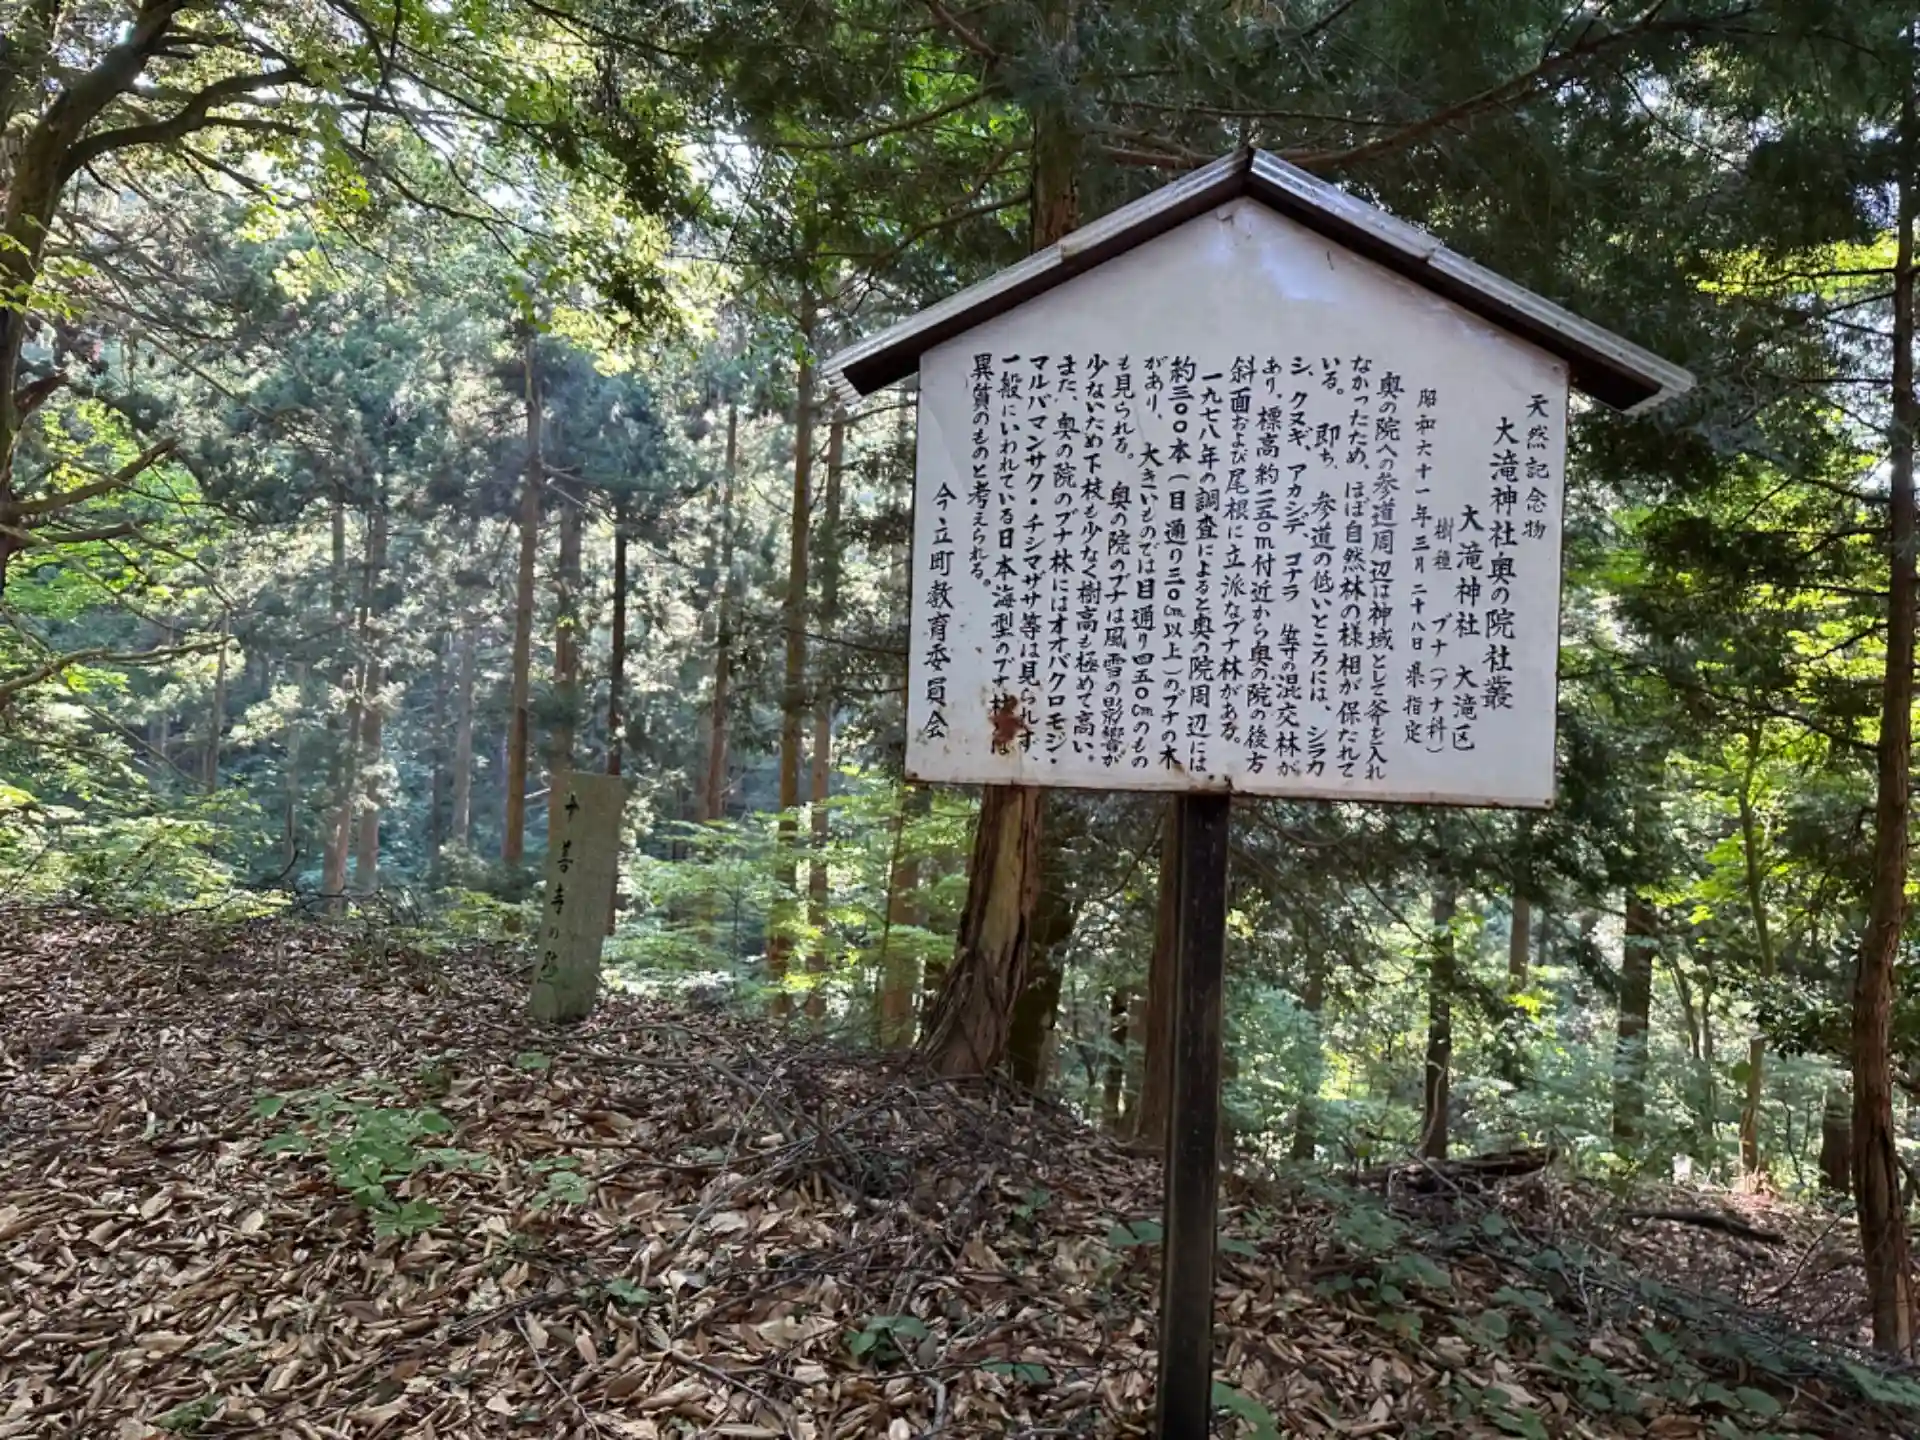 天然記念物
大滝神社奥の院社叢
大滝神社 大滝区
樹種 ブナ(ブナ科)
昭和六十一年三月二十八日県指定
奥の院への参道周辺は神域として斧を入れ
なかったため、ほぼ自然林の様相が保たれて
いる。即ち、参道の低いところには、シラカ
シ、クヌギ、アカシデ、コナラ 等の混交林が
あり、標高約二五〇m付近から奥の院の後方
斜面および尾根に立派なブナ林がある。
一九七八年の調査によると奥の院周辺には
約三〇〇本(目通り三〇cm以上)のブナの木
があり、大きいものでは目通り四五〇cmのもの
も見られる。 奥の院のブナは風雪の影響が
少ないため下枝も少なく樹高も極めて高い。
また、奥の院のブナ林にはオオバクロモジ・
マルバマンサク・チシマザサ等は見られず、
一般にいわれている日本海型のブナ林とは
異質のものと考えられる。
今立町教育委員会
十善寺の跡